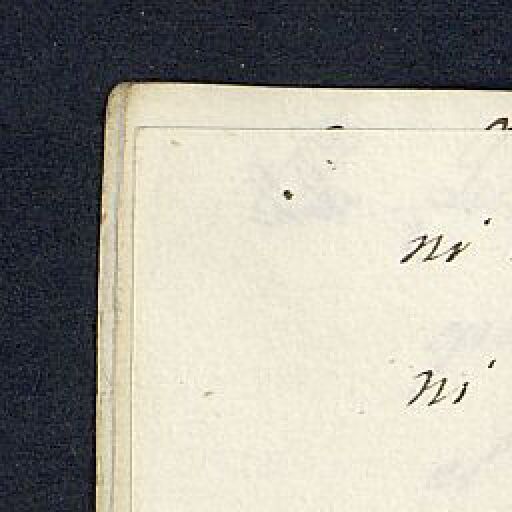 ni
ni